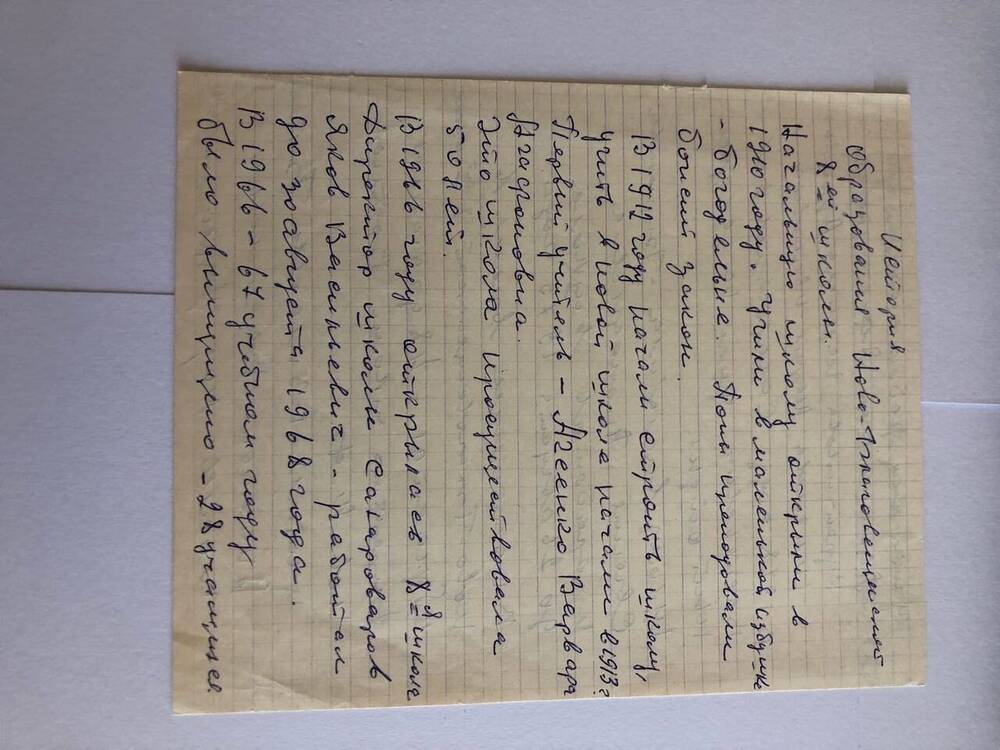 История
образования Ново-Благовещенской
8ей школы.
Начальную школу открыли в
1910 году. Учили в маленькой избушке
- богодельне. Попы преподовали
боский закон.
В 1912 году начали строить школу,
учить в новой школе начали в 1913 г
Первый учитель - Агеенко Варвара
Агафоновна.
Эта школа просуществовала
50 лет.
В 1966 году открылась 8я школа
Директор школы Сахароваров
Яков Васильевич - работал
до 30 августа 1968 года.
В 1966 - 67 учебном году
было выпущено - 28 учащихся